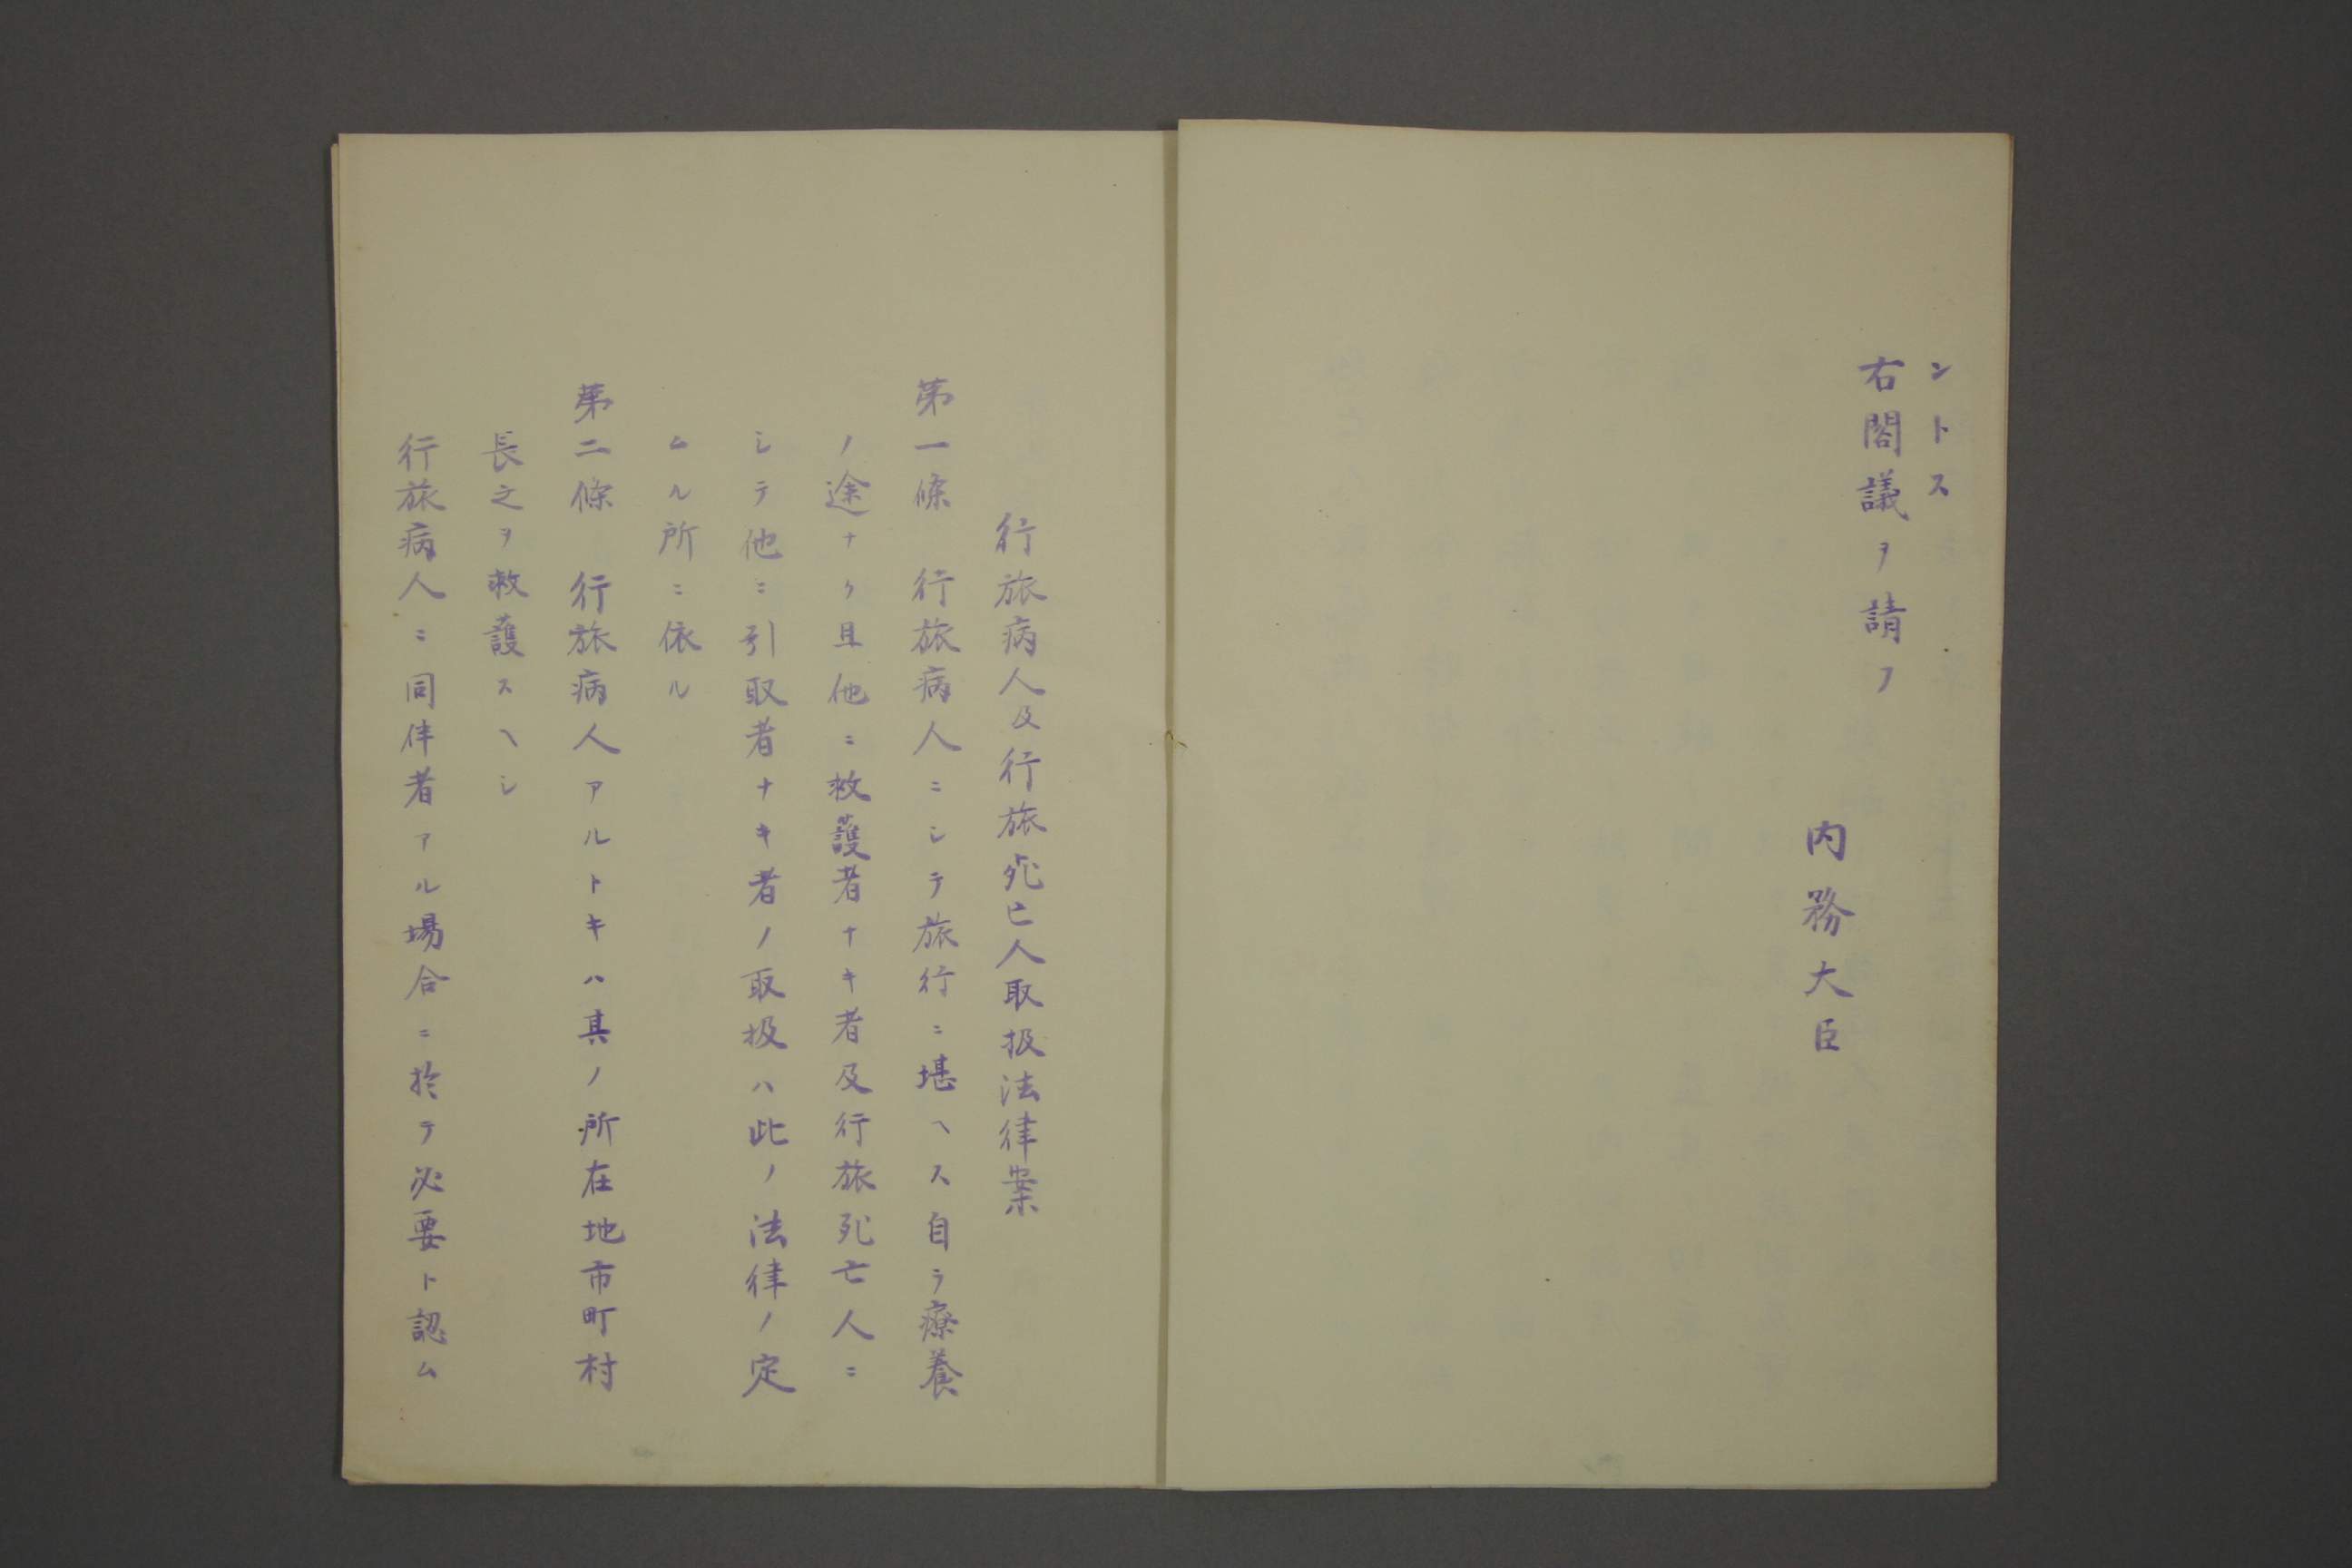 ントス
右閣議ヲ請フ
内務大臣
行旅病人及行旅死亡人取扱法律案
第一條 行旅病人ニシテ旅行ニ堪ヘス自ラ療養
ノ途ナク且他ニ救護者ナキ者及行旅死亡人ニ
シテ他ニ引取者ナキ者ノ取扱ハ此ノ法律ノ定
ムル所ニ依ル
第二條 行旅病人アルトキハ其ノ所在地市町村
長之ヲ救護スヘシ
行旅病人ニ同伴者アル場合ニ於テ必要ト認ム